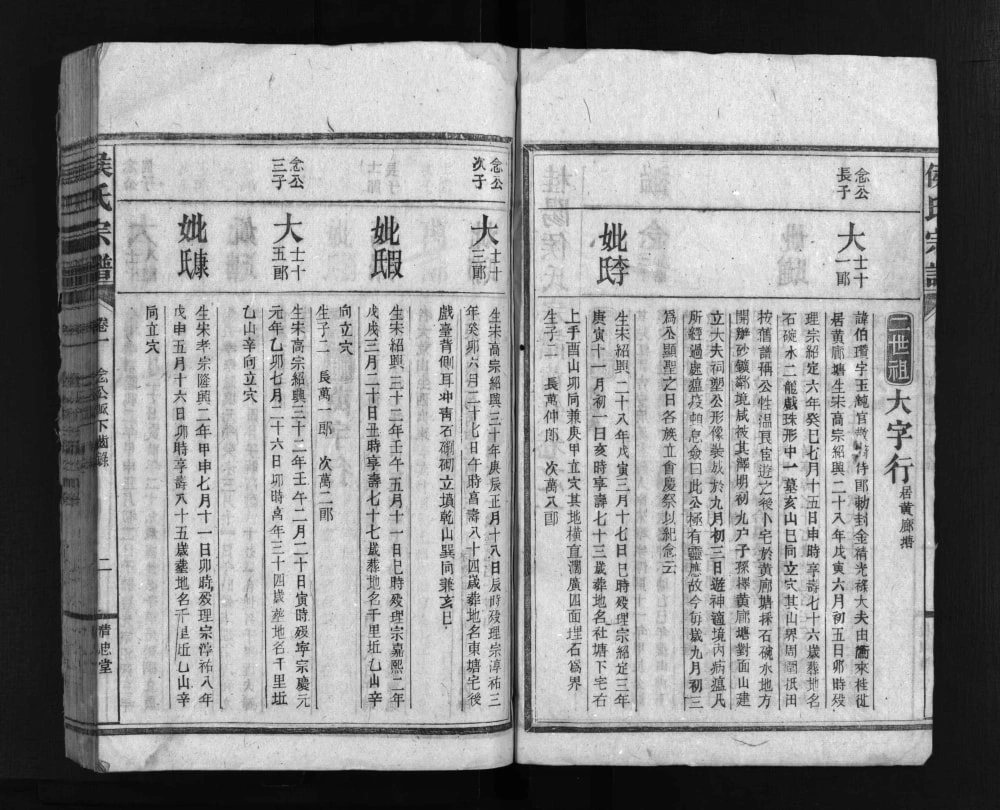 侯氏宗譜
二世祖
大字行 居黃廊塘
念公
長子
大 士十一郎
諱伯 字玉 官 侍郎勅封金精光祿大夫由衡來桂從
居黃廊塘生宋高宗紹興二十八年戊寅六月初五日卯時歿
理宗紹定六年癸巳七月十五日申時享壽七十六歲葬地名
石碗水二龍戲珠形中一墓亥山巳向立穴其山界周圍抵田
按舊譜稱公性溫良宦遊之後卜宅於黃廊塘採石碗水地方
開辦砂鑛鄰境咸被其澤明初九户子孫擇黃廊塘對面山建
立大夫祠塑公形像裝放於九月初三日遊神適境內病瘟凡
所經過處瘟疫 息僉曰此公極有靈應故今每歲九月初三
爲公顯聖之日各族立會慶祭以紀念云
妣李氏
生宋紹興二十八年戊寅三月十七日巳時歿理宗紹定三年
庚寅十一月初一日亥時享壽七十三歲葬地名社塘下宅右
上手酉山卯向兼庚甲立穴其地橫直濶廣四面埋石爲界
生子二 長萬仲郎 次萬八郎
念公
次子
大 士十三郎
生宋高宗紹興三十年庚辰正月十八日辰時歿理宗淳祐三
年癸卯六月二十七日午時享壽八十四歲葬地名東塘宅後
戲臺背側耳冲青石 砌立墳乾山巽向兼亥巳
妣 氏
生宋紹興三十二年壬午五月十一日巳時歿理宗嘉熙二年
戊戌三月二十日丑時享壽七十七歲葬地名千里坵乙山辛
向立穴
生子二 長萬一郎 次萬二郎
念公
三子
大 士十五郎
生宋高宗紹興三十二年壬午二月二十日寅時歿寧宗慶元
元年乙卯七月二十六日卯時享年三十四歲葬地名千里坵
乙山辛向立穴
妣 氏
生宋孝宗隆興二年甲申七月十一日卯時歿理宗淳祐八年
戊申五月十六日卯時享壽八十五歲葬地名千里坵乙山辛
向立穴
侯氏宗譜
卷一
念公派下齒錄
二
堂